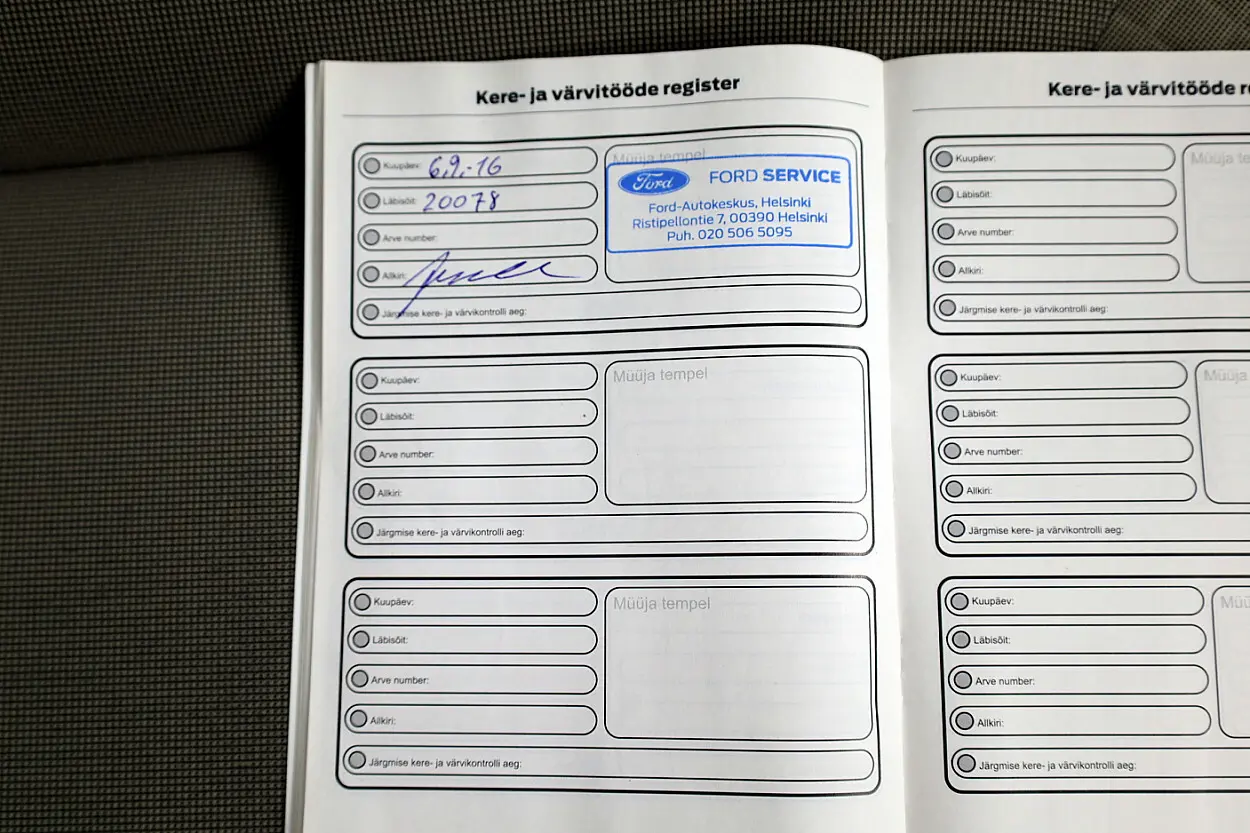 Kere- ja värvitööde register
Kuupäev: 6.9.-16
Läbisõit: 20078
Arve number:
Allkiri:
Järgmise kere- ja värvikontrolli aeg:
Müüja tempel
Ford FORD SERVICE
Ford-Autokeskus, Helsinki
Ristipellontie 7, 00390 Helsinki
Puh. 020 506 5095
Kuupäev:
Läbisõit:
Arve number:
Allkiri:
Järgmise kere- ja värvikontrolli aeg:
Müüja tempel
Kuupäev:
Läbisõit:
Arve number:
Allkiri:
Järgmise kere- ja värvikontrolli aeg:
Müüja tempel
Kere- ja värvitööde re
Kuupäev:
Läbisõit:
Arve number:
Allkiri:
Järgmise kere- ja värvikontrolli aeg:
Müüja te
Kuupäev:
Läbisõit:
Arve number:
Allkiri:
Järgmise kere- ja värvikontrolli aeg:
Müüja
Kuupäev:
Läbisõit:
Arve number:
Allkiri:
Järgmise kere- ja värvikontrolli aeg:
Müü